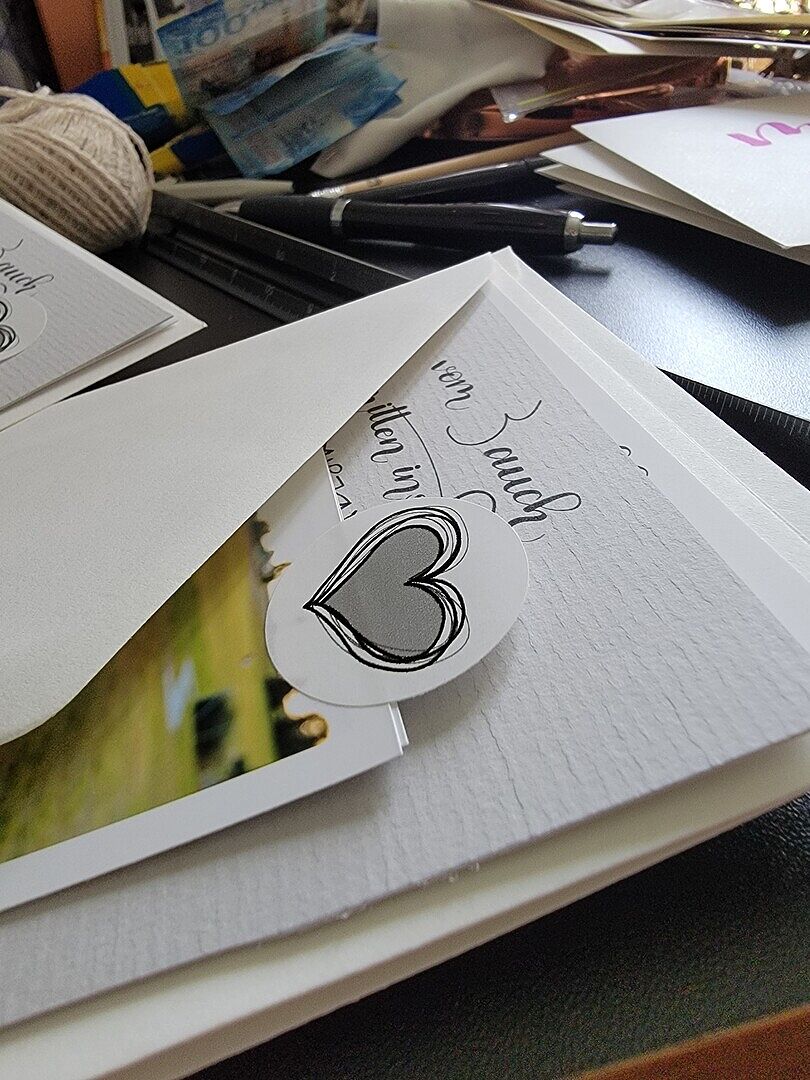 vom Bauch
mitten in
Bauch